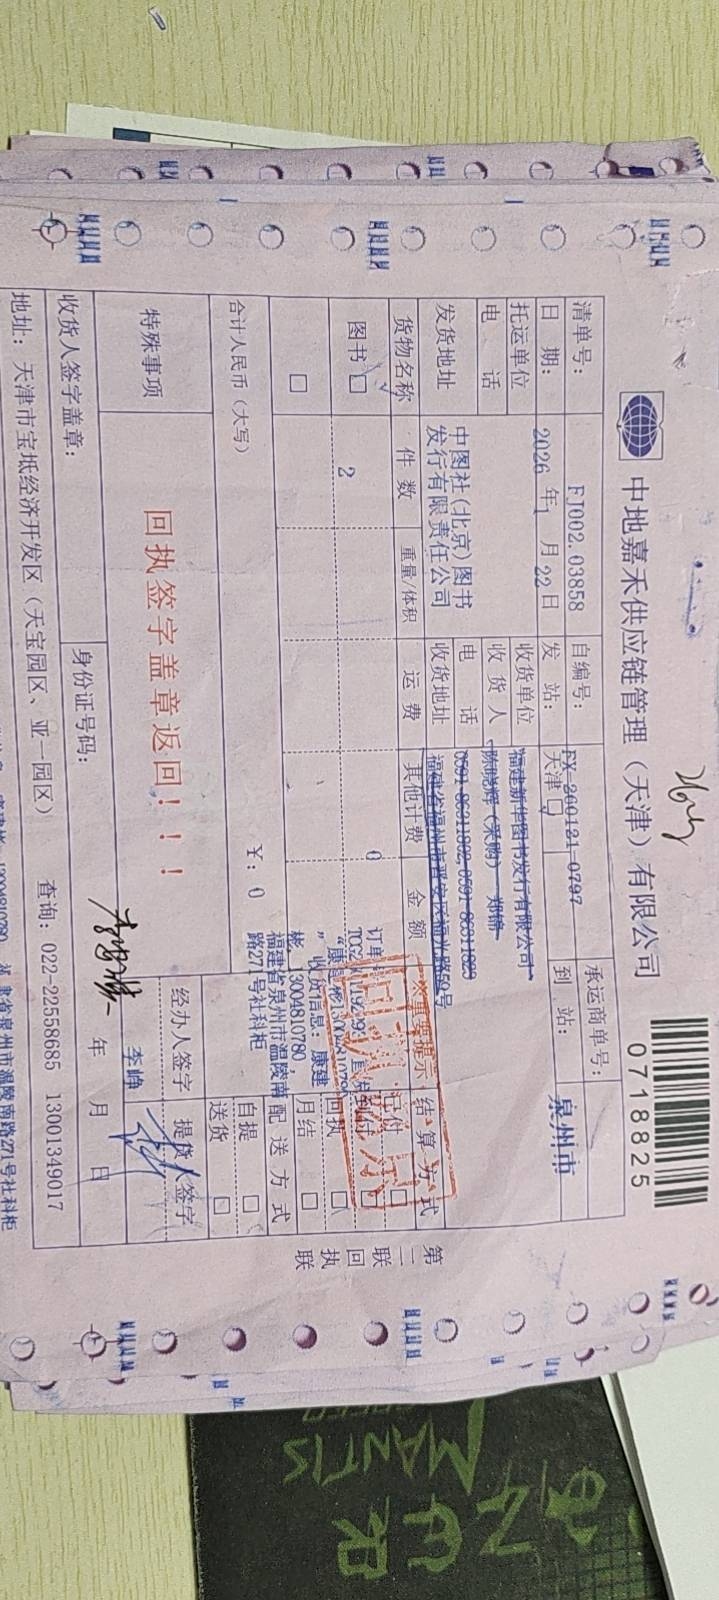 中地嘉禾供应链管理（天津）有限公司
0718825
清单号：
FJ002.03858
自编号：
FX-260121-0797
承运商单号：
日 期：
2026 年 1 月 22 日
发 站：
天津
到 站：
泉州市
托运单位
收货单位
福建新华图书发行有限公司
电 话
收 货 人
陈晓辉（采购）
发货地址
中图社(北京)图书
发行有限责任公司
电 话
收货地址
货物名称
件 数
重量/体积
运 费
其他计费
金 额
※重要提示
结 算 方 式
图书
2
0
回执
月结
收货信息：康建
彬，13004810780，
福建省泉州市温陵南
路271号社科柜
配 送 方 式
自提
送货
合计人民币（大写）
￥：0
特殊事项
回执签字盖章返回！！！
经办人签字
李峥
提货人签字
收货人签字盖章：
身份证号码：
年 月 日
地址：天津市宝坻经济开发区（天宝园区、亚一园区）
查询：022-22558685 13001349017
第二联 回执联